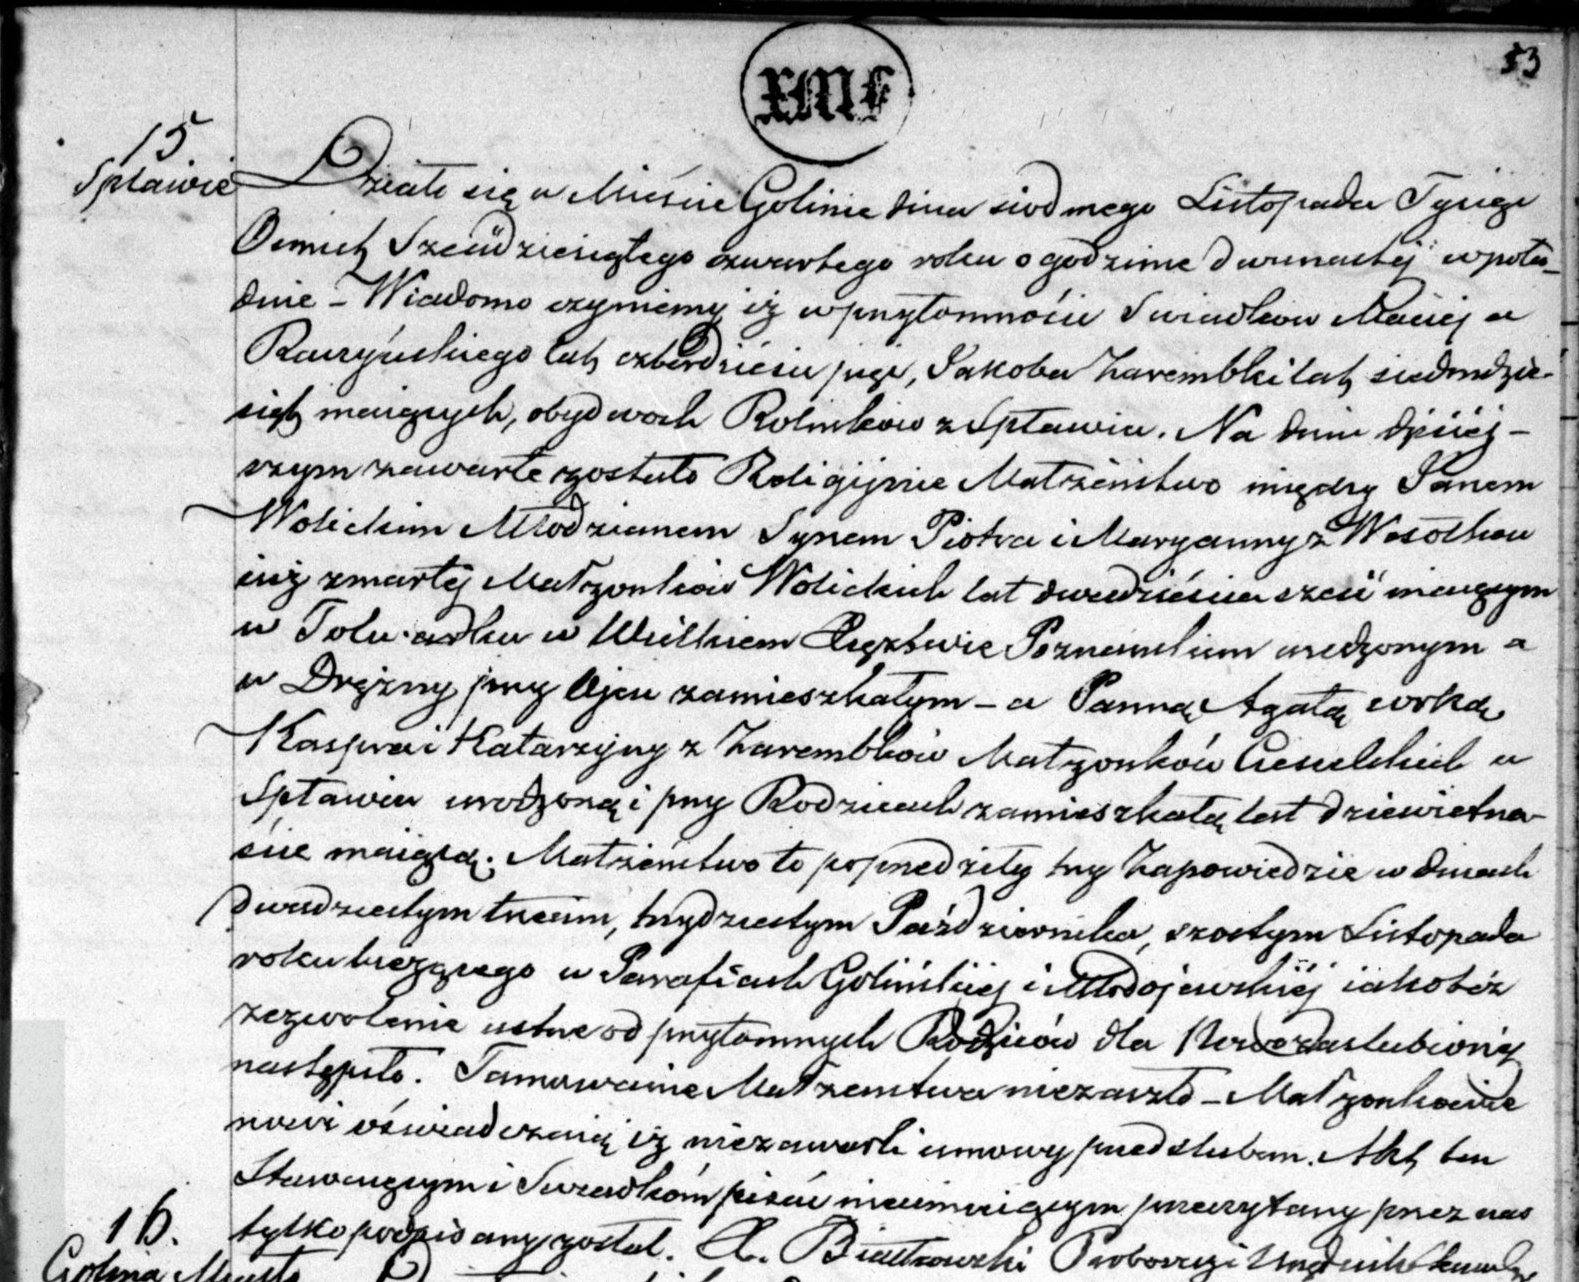 53
XMC
15
Spławie
Działo się w Mieście Golinie dnia siodmego Listopada Tysiąc
Osmset Szesdziesiątego czwartego roku o godzinie dwunastej w połu-
dnie – Wiadomo czyniemy iż w przytomności Swiadków Macieja
lat czterdziesci pięc, Jakoba Zarembki lat siedmdzie-
siąt maiących, obydwoch Rolników z Spławia. Na dniu dzisiej-
szym zawarte zostało Religijnie Małżeństwo między Janem
Wolickim Młodzianem Synem Piotra i Maryanny z Wesołków
już zmarłej Małżonków Wolickich lat dwadzieścia sześć maiącym
w w Wielkiem Xięztwie Poznanskiem urodzonym a
w Drążny przy Ojcu zamieszkałym – a Panną Agatą corką
Kaspra i Katarzyny z Zarembków Małżonków Ciesielskich w
Spławiu urodzoną i przy Rodzicach zamieszkałą lat dziewietna-
ście maiącą. Małżeństwo to poprzedziły trzy Zapowiedzie w dniach
dwudziestym trzecim, trzydziestym Października, szostym Listopada
roku bieżącego w Parafiach Golińskiej i Młodojewskiéj iakotéż
zezwolenie ustne od przytomnych Rodziców dla Nowozaslubionéj
nastąpiło. Tamowanie Małżenstwa niezaszło – Małżonkowie
nowi oświadczaią iż niezawarli umowy przedslubem. Akt ten
Stawaiącym i Swiadkóm pisać nieumieiącym przeczytany przez nas
tylko podpisany został. X. Białkowski Proboszcz i Urzędnik
16.
Golina Miasto